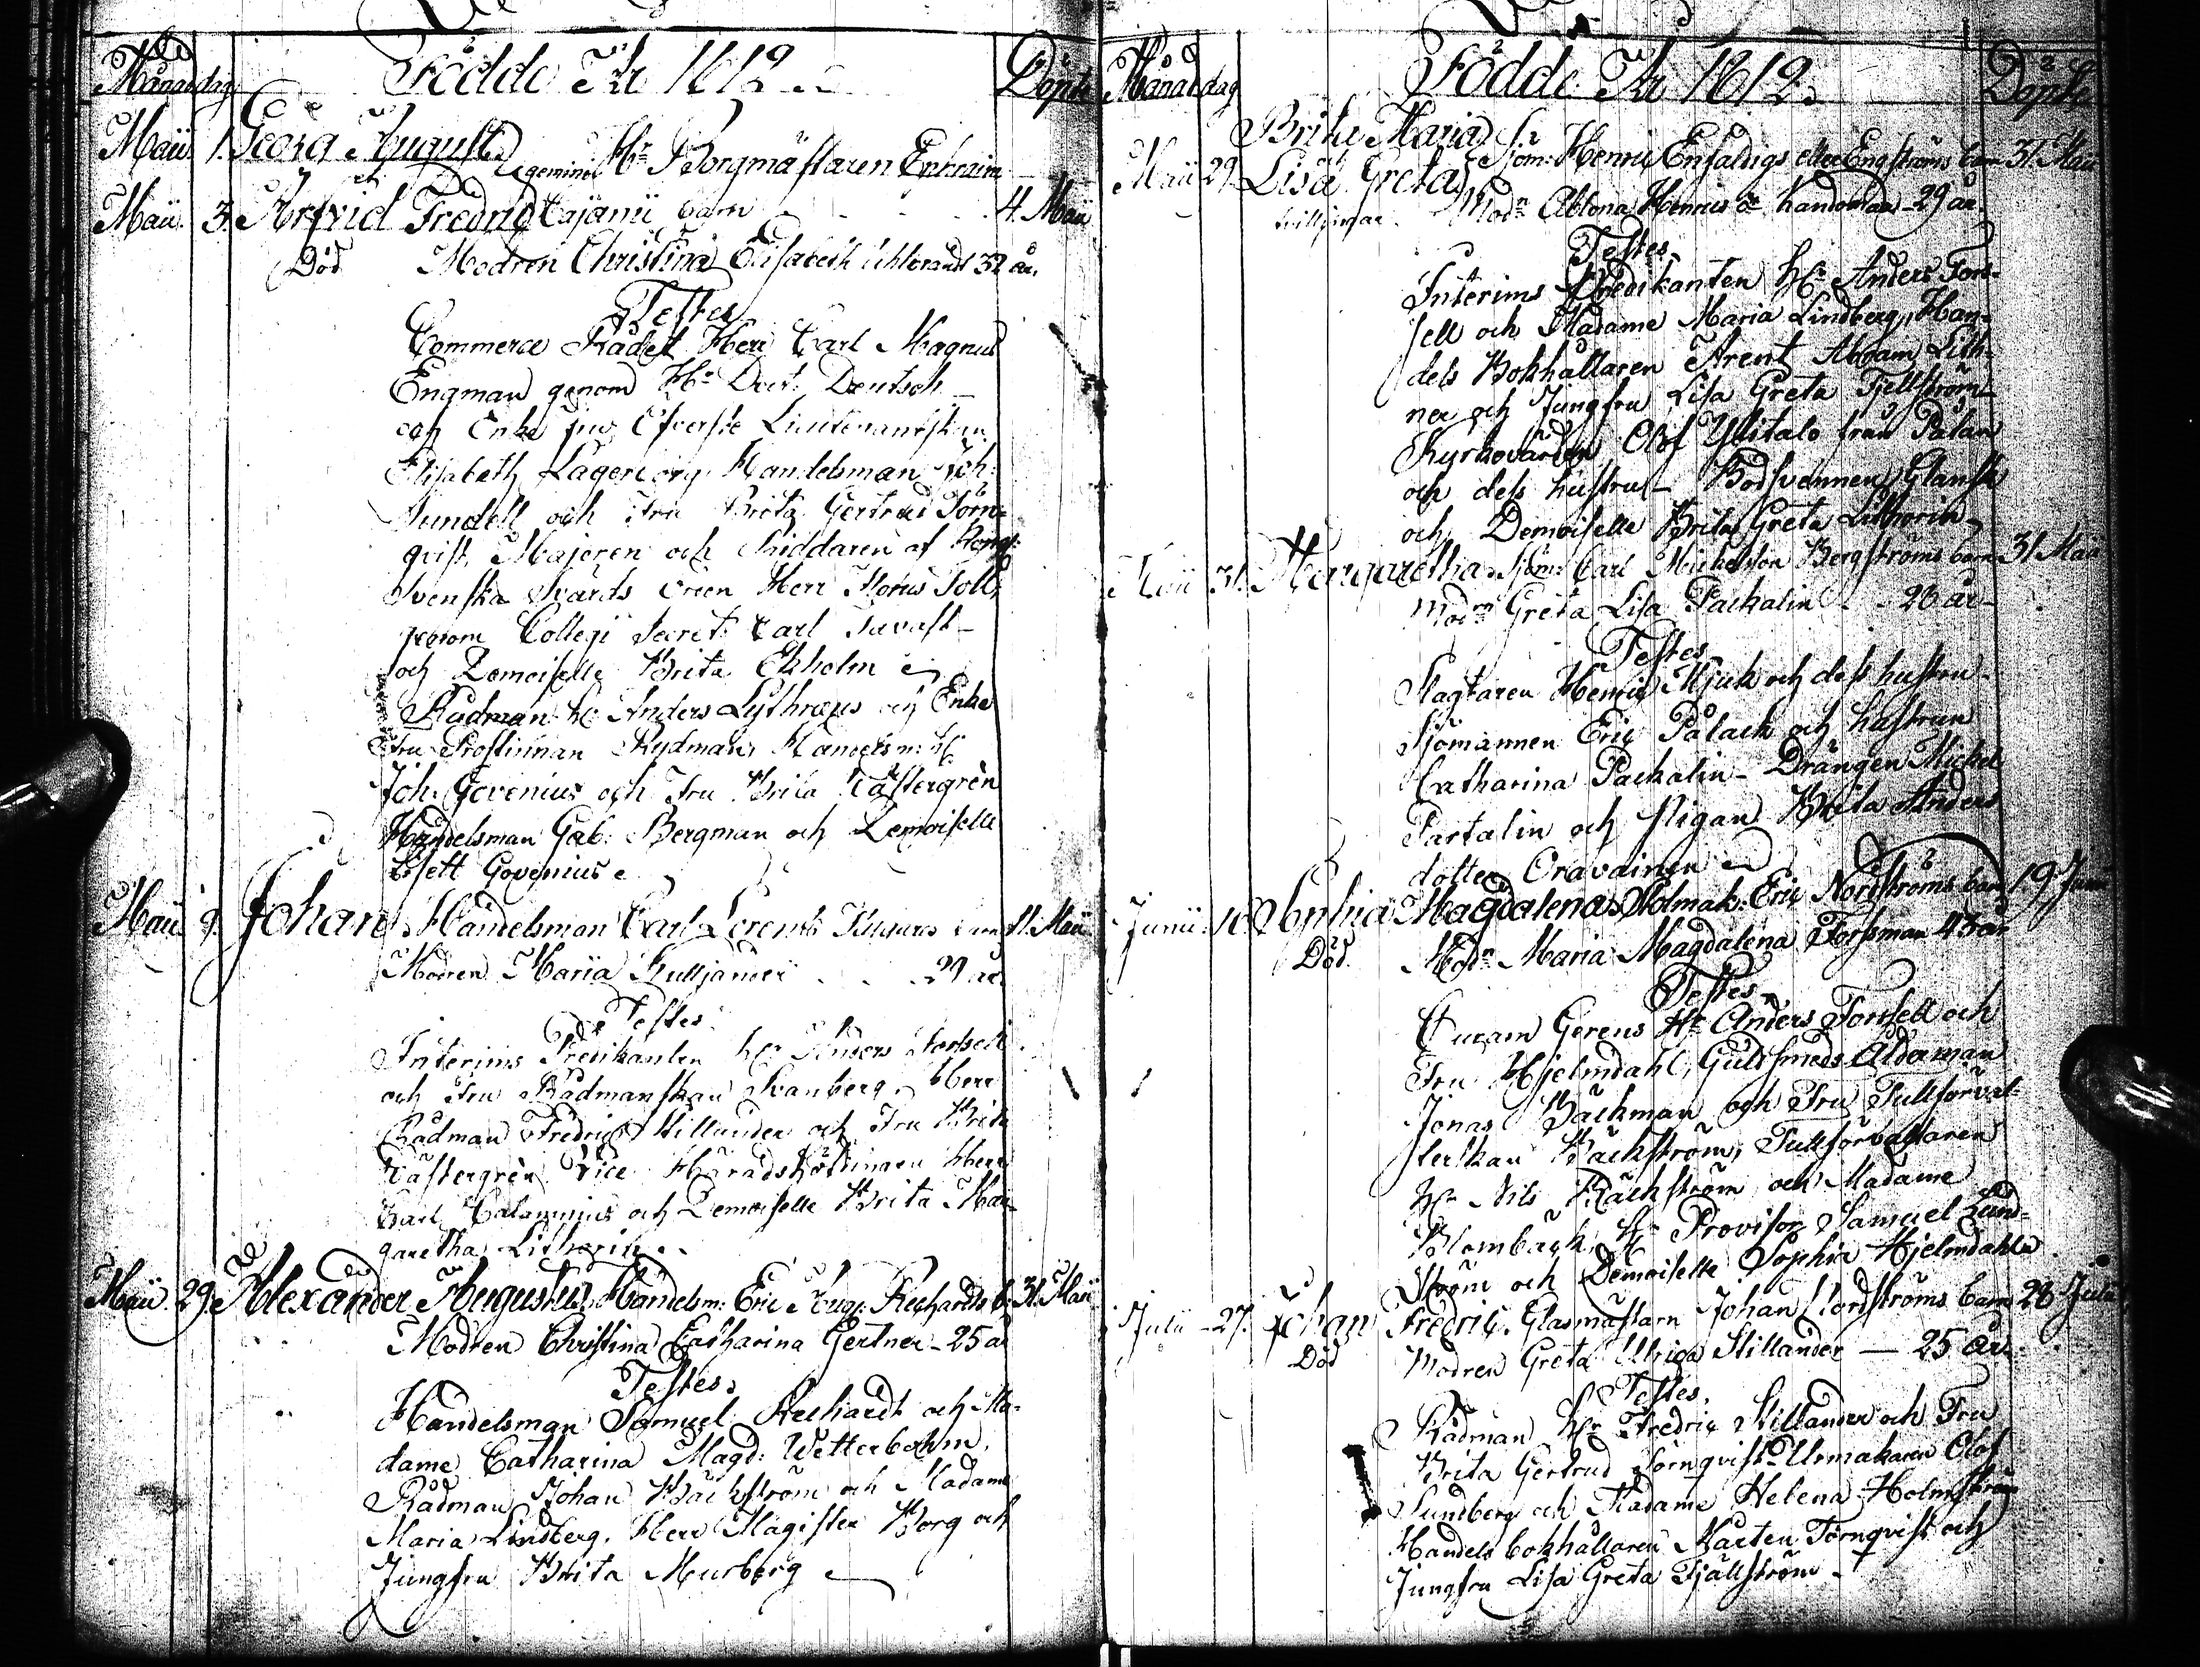 Månad dag Födde År 1812 Döpte
Maii 1. Georg August
gemini Hr Borgmästaren Ephraim
och
Maii. 3. Arfvid Fredric Cajanii barn 4. Maii
Död Modren Christina Elisabeth 32 år.
Testes
Commerce Rådet Herr Carl Magnus
Engman genom Hr Doct. Deutsch
och Enke Fru Öfverste Lieutenantskan
Elisabeth Lagerborg. Handelsman Joh:
Sundell och Fru Brita Gertrud Törn-
qvist, Majoren och Riddaren af Kongl:
Svenska Svärds Orden Herr Toll,
genom Collegii Secret: Carl Tavast
och Demoiselle Brita Ekholm
Rådman Hr Anders Lythræus och Enke
Fru Prostinnan Rydman, Handelsm: Hr
Joh: Govenius och Fru Brita Wästergrén
Handelsman Gab: Bergman och Demoiselle
Lisett Govenius
Maii 9. Johan Handelsman Carl Lorents barn 11. Maii
Modren Maria 29 år
Testes
Interims Predikanten Hr Anders Forssell
och Fru Rådmanskan Svanberg, Herr
Rådman Fredric Stillander och Fru Brita
Wästergrén, Vice Häradshöfdingen Herr
Carl Calamnius och Demoiselle Brita Mar-
garetha Litherin
Maii 29. Alexander Augustus Handelsm: Eric Aug: Rechardts b: 31. Maii
Modren Christina Catharina Gertner - 25 år
Testes.
Handelsman Samuel Rechardt och Ma-
dame Catharina Magd: Wetterbohm.
Rådman Johan Bäckström och Madame
Maria Lindberg. Herr Magister Borg och
Jungfru Brita Murberg
Månad dag Födde År 1812. Döpte
Brita Maria
Maii 29. Lisa Greta Sjöm: Henric Enfaldigs eller Engströms barn 31. Maii
tvillingar. Modn Ablona Henrics dr 29 år.
Testes
Interims Predikanten Hr Anders Fors-
sell och Madame Maria Lindberg, Han-
dels Bokhållaren Arent Abram Lith-
ner och Jungfru Lisa Greta Fjellström
Kyrkovärden Olof Ylitalo från Palan
och dess hustru - Bodsvennen Glansk
och Demoiselle Brita Greta Litherin
Maii 31. Margaretha. Sjöm: Carl Michelsson Bergströms barn 31 Maii
Modrn Greta Lisa Packalin 26 år
Testes
Slagtaren Henric Mjuk och dess hustru
Sjömannen Eric Palack och hustrun
Catharina Packalin - Drängen Michel
Partalin och Pigan Brita Anders
dotter Oravainen
Junii 18. Sophia Magdalena Holmak: Eric Nordströms barn 19 Junii
Död. Modrn Maria Magdalena Forsman 43 år
Testes
Curam Gerens Hr Anders Forssell och
Fru Hjelmdahl, Guldsmeds Ålderman
Jonas Backman och Fru Tullförval-
terskan Bäckström, Tullförvaltaren
Hr Nils Bäckström och Madame
Blomback, Hr Provisor Samuel Lund-
ström och Demoiselle Sophia Hjelmdahl
Julii 27. Johan Fredric. Glasmästarn Johan Nordströms barn 28 Julii
Död Modren Greta Ulrica Stillander - 25 år
Testes.
Rådman Hr Fredric Stillander och Fru
Brita Gertrud Törnqvist. Urmakaren Olof
Sundberg och Madame Helena Holmström
Handels bokhållaren Mårten Törnqvist och
Jungfru Lisa Greta Fjällström